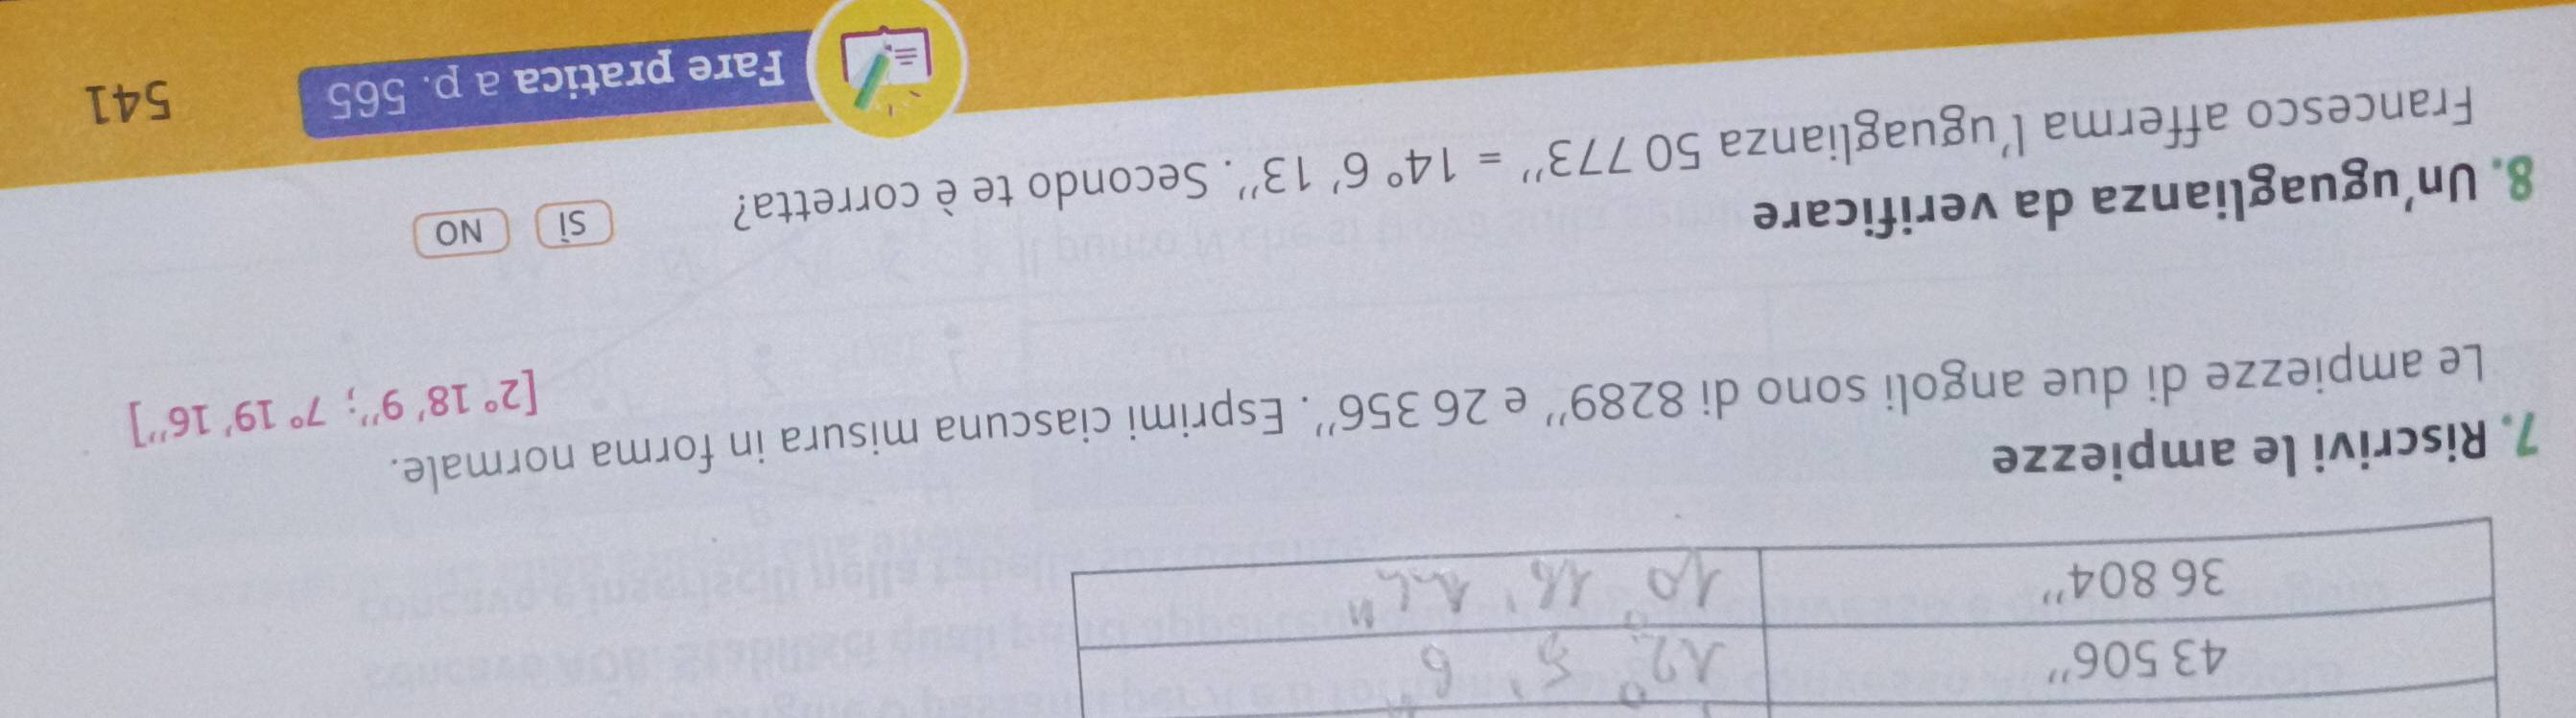 43 506'' 12° 5' 6''
36 804''
7. Riscrivi le ampiezze
Le ampiezze di due angoli sono di 8289'' e 26 356''. Esprimi ciascuna misura in forma normale.
[2° 18' 9''; 7° 19' 16'']
8. Un'uguaglianza da verificare
Francesco afferma l'uguaglianza 50 773'' = 14° 6' 13''. Secondo te è corretta? SÌ NO
Fare pratica a p. 565
541